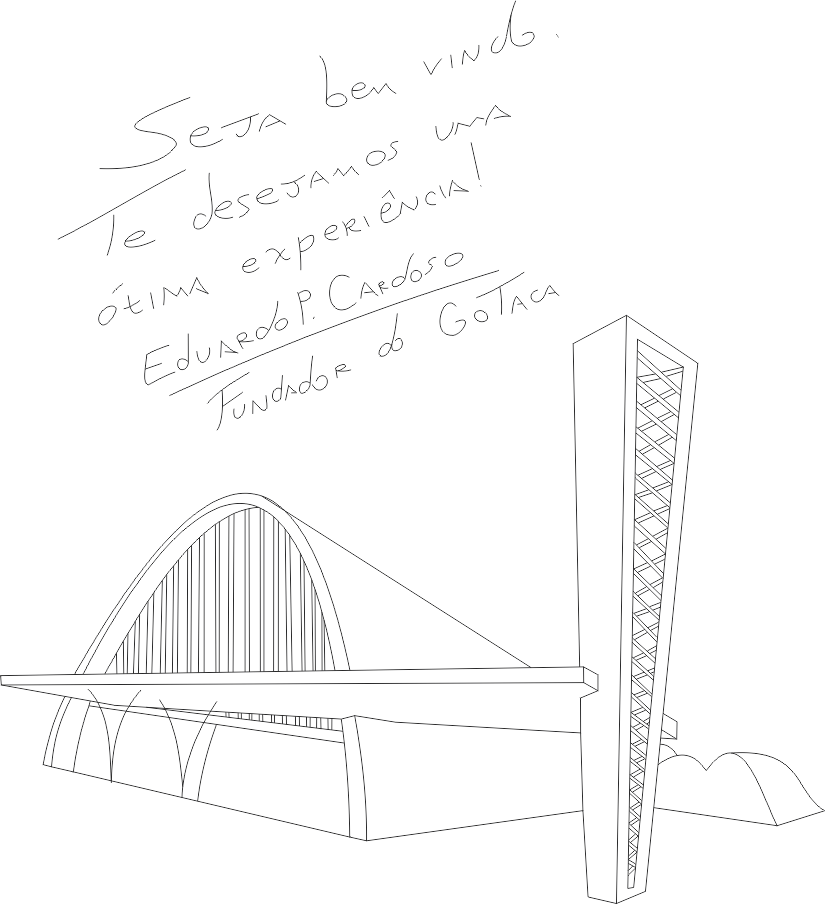 Seja bem vindo.
Te desejamos uma
ótima experiência!
Eduardo P. Cardoso
Fundador do GoTaca